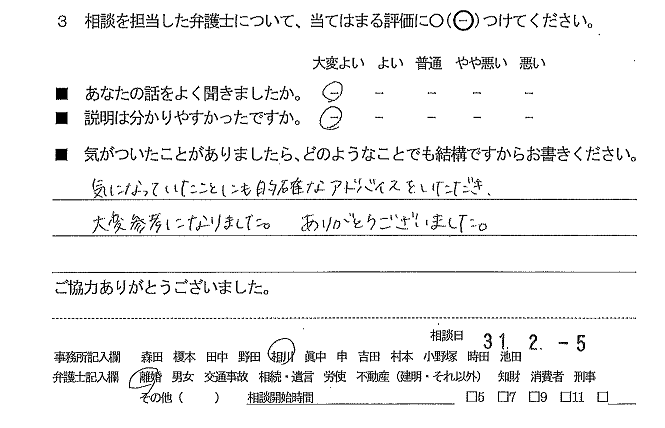 3 相談を担当した弁護士について、当てはまる評価に○(⊖)つけてください。
大変よい よい 普通 やや悪い 悪い
■ あなたの話をよく聞きましたか。 － － － － －
■ 説明は分かりやすかったですか。 － － － － －
■ 気がついたことがありましたら、どのようなことでも結構ですからお書きください。
気になっていたことにも的確なアドバイスをいただき、
大変参考になりました。 ありがとうございました。
ご協力ありがとうございました。
相談日 31. 2. -5
事務所記入欄 森田 榎本 田中 野田 相川 眞中 申 吉田 村本 小野塚 時田 池田
弁護士記入欄 離婚 男女 交通事故 相続・遺言 労使 不動産（建明・それ以外） 知財 消費者 刑事
その他（ ） 相談開始時間 □5 □7 □9 □11 □